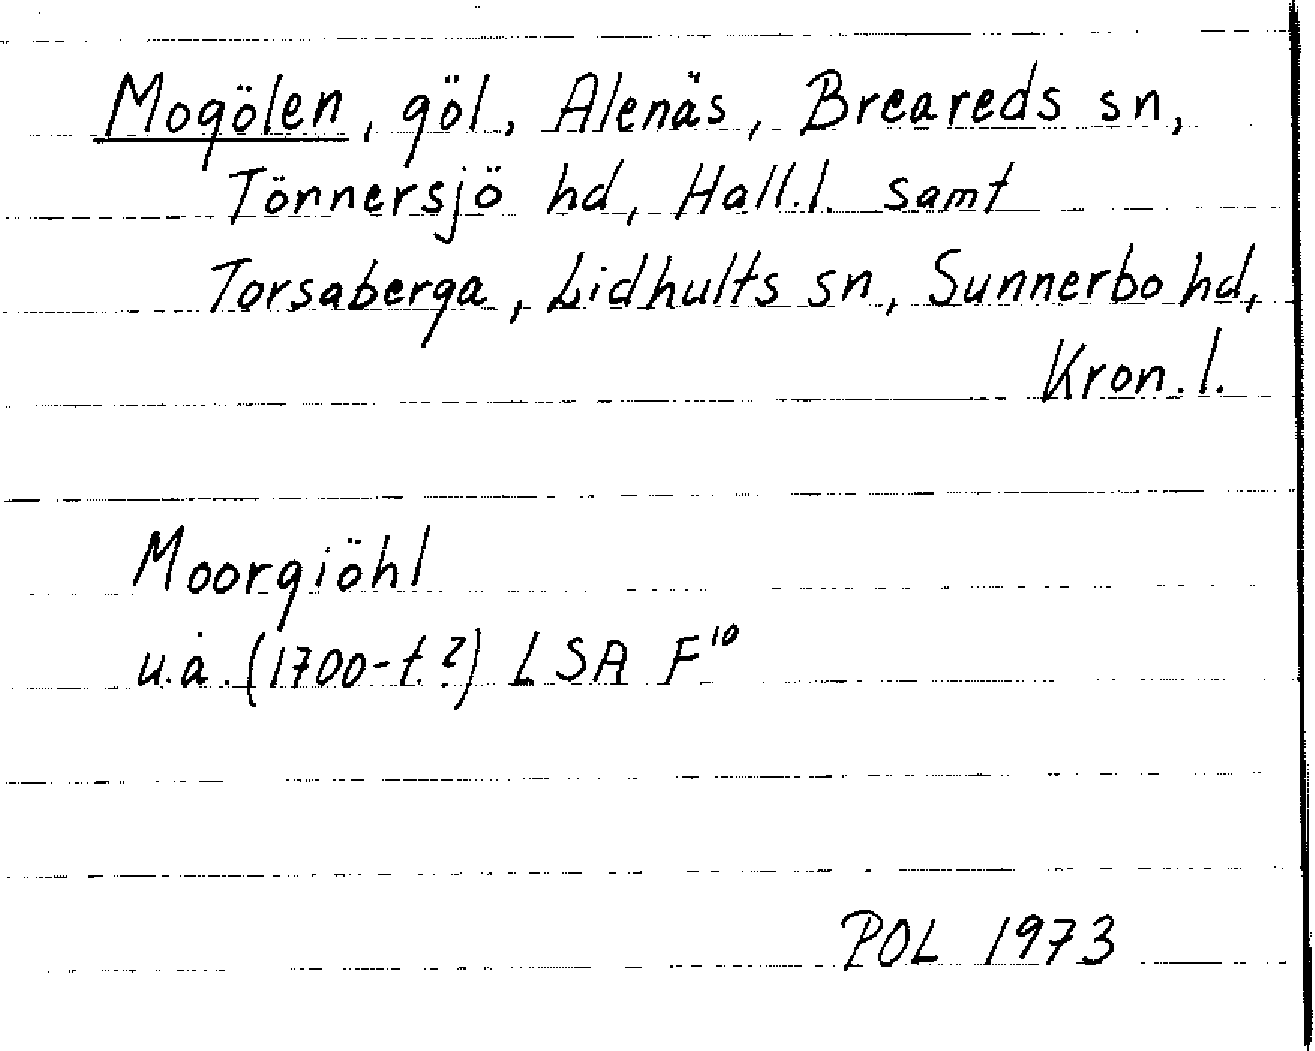 Mogölen, göl, Alenäs, Breareds sn,
Tönnersjö hd, Hall.l. samt
Torsaberga, Lidhults sn, Sunnerbo hd,
Kron.l.
Moorgiöhl
u.å. (1700-t.?) LSA F¹⁰
POL 1973